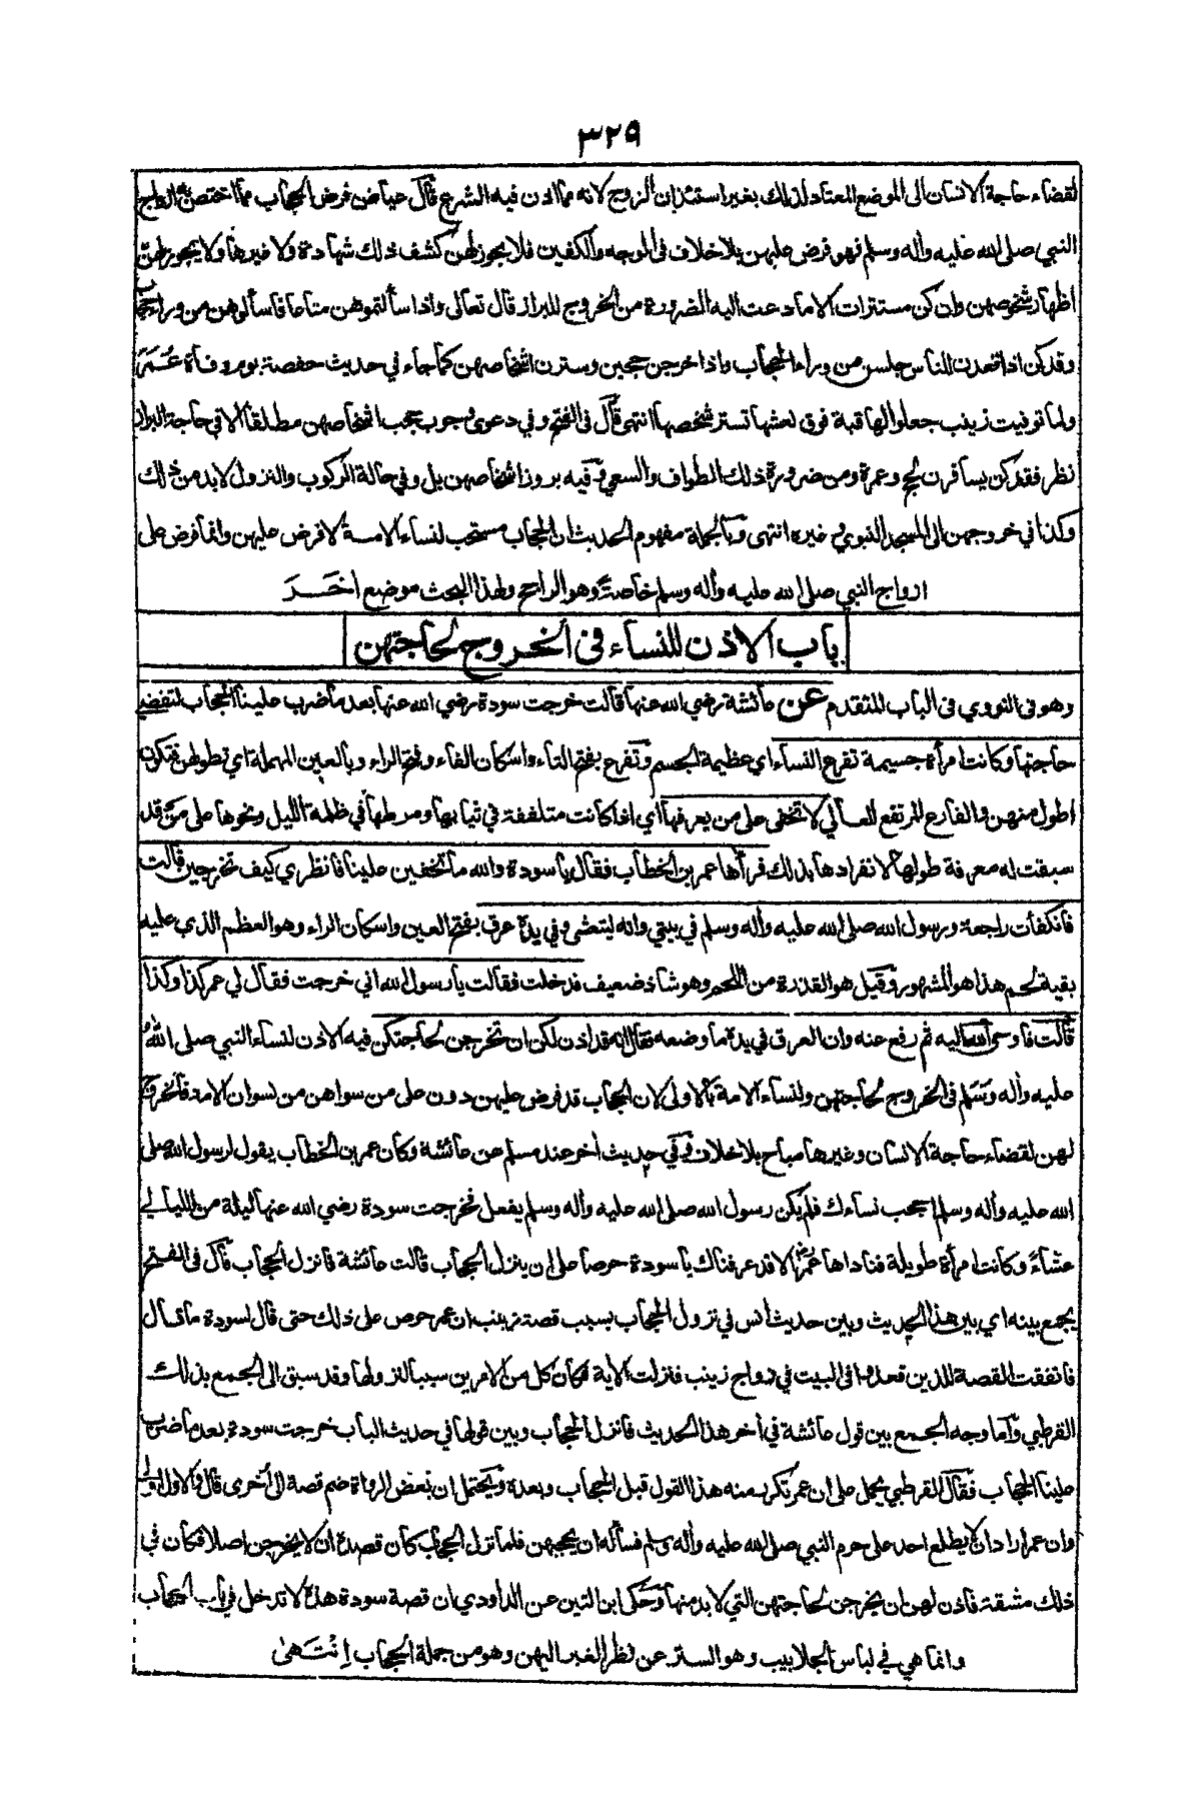 ٣٢٩
لقضاء حاجة الانسان الى الموضع المعتاد لذلك بغير استئذان الزوج لانه مما اذن فيه الشرع قال عياض فرض الحجاب مما اختص به ازواج
النبي صلى الله عليه وأله وسلم فهو فرض عليهن بلا خلاف فى الوجه والكفين فلا يجوز لهن كشف ذلك شهادة ولا غيرها ولا يجوز لهن
اظهار شخوصهن وان كن مستترات الا ما دعت اليه الضرورة من الخروج للبراز قال تعالى واذا سألتموهن متاعا فاسألوهن من وراء حجاب
وقد كن اذا قعدن للناس جلسن من وراء الحجاب واذا خرجن حجبن وسترن اشخاصهن كما جاء في حديث حفصة يوم وفاة عُمَرَ
ولما توفيت زينب جعلوا لها قبة فوق نعشها تستر شخصها انتهى قال فى الفتح وفي دعوى وجوب حجب اشخاصهن مطلقا الا في حاجة البراز
نظر فقد كن يسافرن لحج وعمرة ومن ضرورة ذلك الطواف والسعي وفيه بروز اشخاصهن بل وفي حالة الركوب والنزول لا بد من ذلك
وكذا في خروجهن الى المسجد النبوي وغيره انتهى وبالجملة مفهوم الحديث ان الحجاب مستحب لنساء الامة لا فرض عليهن وانما فرض على
ازواج النبي صلى الله عليه وأله وسلم خاصة وهو الراجح ولهذا البحث موضع اخَــرَ
باب الاذن للنساء فى الخروج لحاجتهن
وهو فى النووي فى الباب المتقدم عن عائشة رضي الله عنها قالت خرجت سودة رضي الله عنها بعد ما ضرب علينا الحجاب لتقضي
حاجتها وكانت امرأة جسيمة تفرع النساء اي عظيمة الجسم وتفرع بفتح التاء واسكان الفاء وفتح الراء وبالعين المهملة اي تطولهن فتكون
اطول منهن والفارع المرتفع العالي لا تخفى على من يعرفها اي اذا كانت متلففة في ثيابها ومرطها في ظلمة الليل ونحوها على من قد
سبقت له معرفة طولها لانفرادها بذلك فرأها عمر بن الخطاب فقال يا سودة والله ما تخفين علينا فانظري كيف تخرجين قالت
فانكفأت راجعة ورسول الله صلى الله عليه وأله وسلم في بيتي وانه ليتعشى وفي يده عرق بفتح العين واسكان الراء وهو العظم الذي عليه
بقية لحم هذا هو المشهور وقيل هو القذرة من اللحم وهو شاذ ضعيف فدخلت فقالت يا رسول الله اني خرجت فقال لي عمر كذا وكذا
قالت فاوحى الله اليه ثم رفع عنه وان العرق في يده ما وضعه فقال انه قد اذن لكن ان تخرجن لحاجتكن فيه الاذن لنساء النبي صلى اللهُ
عليه وأله وَسَلم فى الخروج لحاجتهن ولنساء الامة بالاولى لان الحجاب قد فرض عليهن دون على من سواهن من نسوان الامة فالخروج
لهن لقضاء حاجة الانسان وغيرها مباح بلا خلاف وفي حديث أخر عند مسلم عن عائشة وكان عمر بن الخطاب يقول لرسول الله صلى
الله عليه وأله وسلم احجب نساءك فلم يكن رسول الله صلى الله عليه وأله وسلم يفعل فخرجت سودة رضي الله عنها ليلة من الليالي
عشاءً وكانت امرأة طويلة فناداها عمر الا قد عرفناك يا سودة حرصا على ان ينزل الحجاب قالت عائشة فانزل الحجاب قال فى الفتح
يجمع بينه اي بين هذا الحديث وبين حديث أنس في نزول الحجاب بسبب قصة زينب ان عمر حرص على ذلك حتى قال لسودة ما قال
فاتفقت القصة للذين قعدوا فى البيت في زواج زينب فنزلت الأية فكان كل من الامرين سببا لنزولها وقد سبق الى الجمع بذلك
القرطبي واما وجه الجمع بين قول عائشة في أخر هذا الحديث فانزل الحجاب وبين قولها في حديث الباب خرجت سودة بعد ما ضرب
علينا الحجاب فقال القرطبي يحمل على ان عمر تكرر منه هذا القول قبل الحجاب وبعده ويحتمل ان بعض الرواة ضم قصة الى أخرى قال والاول اولى
وان عمر اراد ان لا يطلع احد على حرم النبي صلى الله عليه وأله وسلم فسأله ان يحجبهن فلما نزل الحجاب كان قصده ان لا يخرجن اصلا فكان في
ذلك مشقة فاذن لهن ان يخرجن لحاجتهن التي لا بد منها وحكى ابن التين عن الداودي ان قصة سودة هذه لا تدخل في باب الحجاب
وانما هي في لباس الجلابيب وهو الستر عن نظر الغير اليهن وهو من جملة الحجاب اِنْتَهىٰ